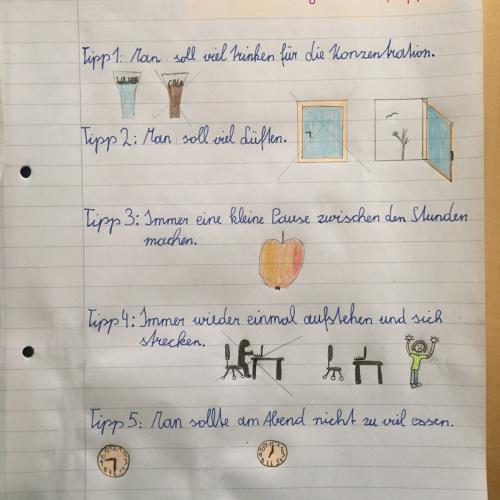 Tipp 1: Man soll viel trinken für die Konzentration.
WASSER COLA
Tipp 2: Man soll viel Lüften.
Tipp 3: Immer eine kleine Pause zwischen den Stunden
machen.
Tipp 4: Immer wieder einmal aufstehen und sich
strecken.
Tipp 5: Man sollte am Abend nicht zu viel essen.